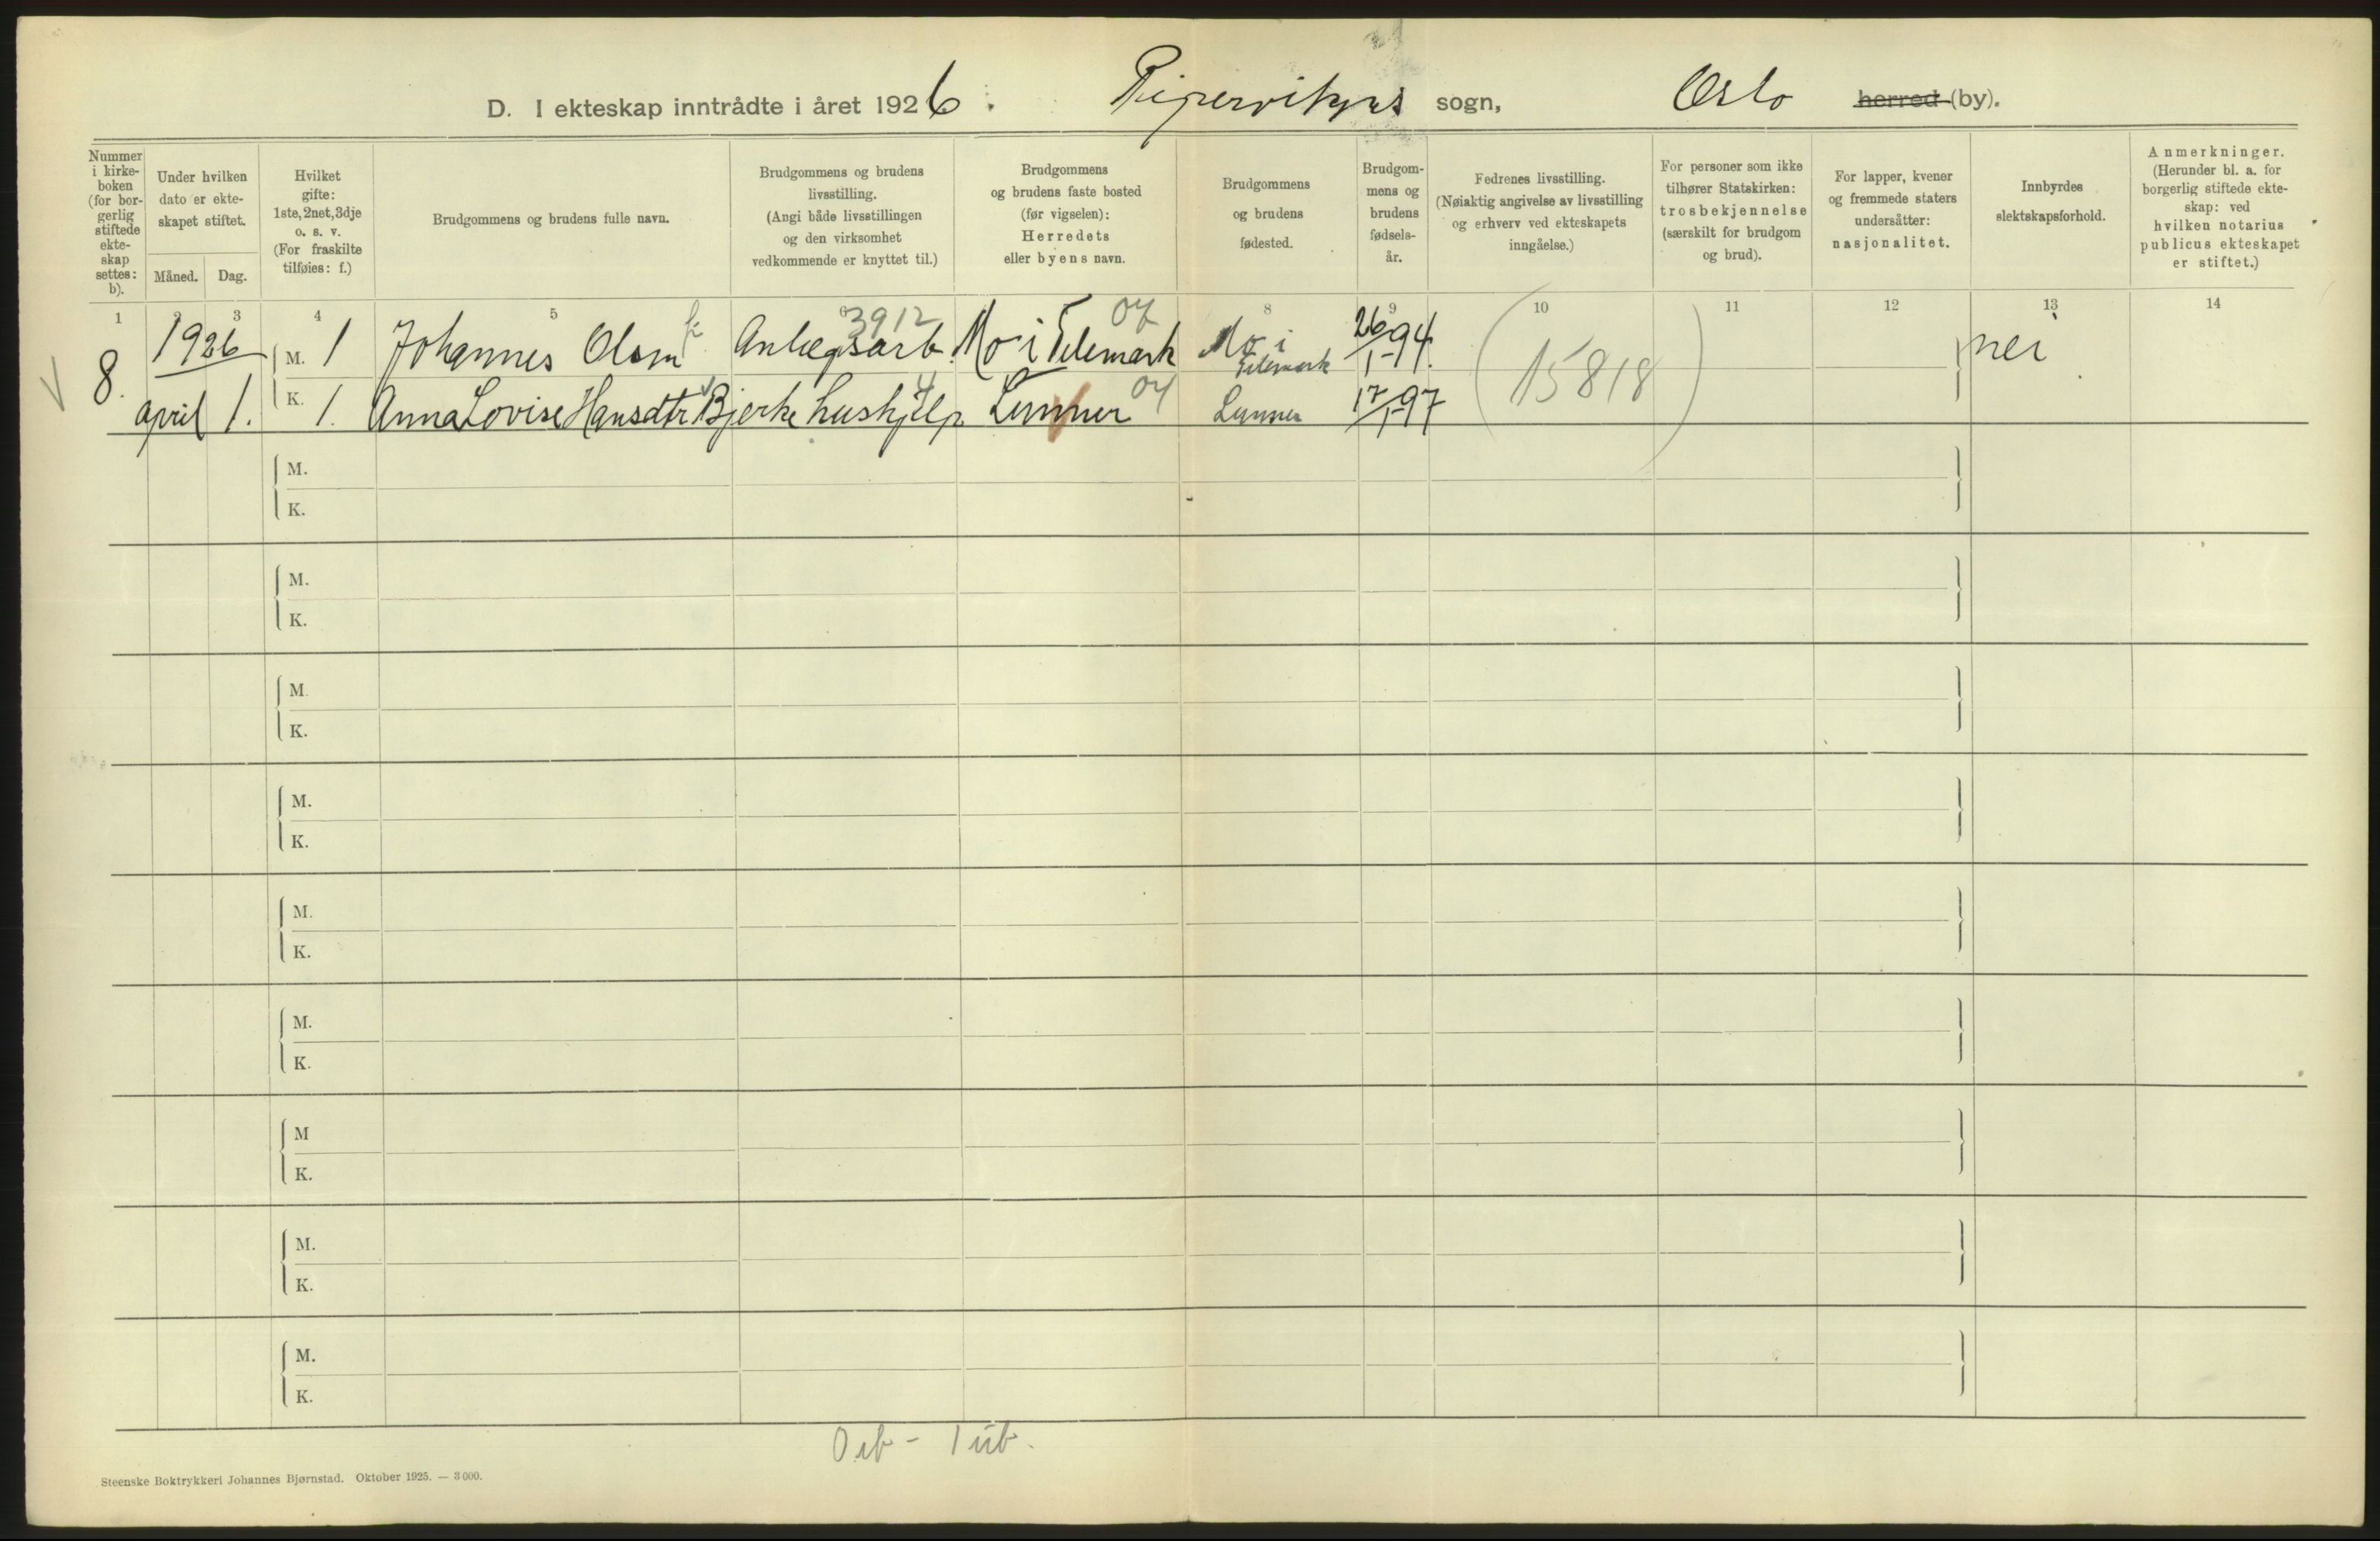 D. I ekteskap inntrådte i året 1926. Pipervikens sogn, Oslo herred (by).
Nummer i kirke-boken (for bor-gerlig stiftede ekte-skap settes: b).
Under hvilken dato er ekte-skapet stiftet.
Måned. Dag.
Hvilket gifte: 1ste, 2net, 3dje o. s. v. (For fraskilte tilføies: f.)
Brudgommens og brudens fulle navn.
Brudgommens og brudens livsstilling. (Angi både livsstillingen og den virksomhet vedkommende er knyttet til.)
Brudgommens og brudens faste bosted (før vigselen): Herredets eller byens navn.
Brudgommens og brudens fødested.
Brudgom-mens og brudens fødsels-år.
Fedrenes livsstilling. (Nøiaktig angivelse av livsstilling og erhverv ved ekteskapets inngåelse.)
For personer som ikke tilhører Statskirken: trosbekjennelse (særskilt for brudgom og brud).
For lapper, kvener og fremmede staters undersåtter: nasjonalitet.
Innbyrdes slektskapsforhold.
Anmerkninger. (Herunder bl. a. for borgerlig stiftede ekte-skap: ved hvilken notarius publicus ekteskapet er stiftet.)
1 2 3 4 5 6 8 9 10 11 12 13 14
3912 07
8. 1926 M. 1 Johannes Olsen Anlægsarb. Mo i Telemark Mo i Telemark 26/1-94. (15818) nei
april 1. K. 1. Anna Lovise Hansdtr Bjerke hushjelp Lunner 04 Lunner 17/1-97
M.
K.
M.
K.
M.
K.
M.
K.
M.
K.
M.
K.
M
K.
M.
K.
M.
K.
Steenske Boktrykkeri Johannes Bjørnstad. Oktober 1925. — 3000.